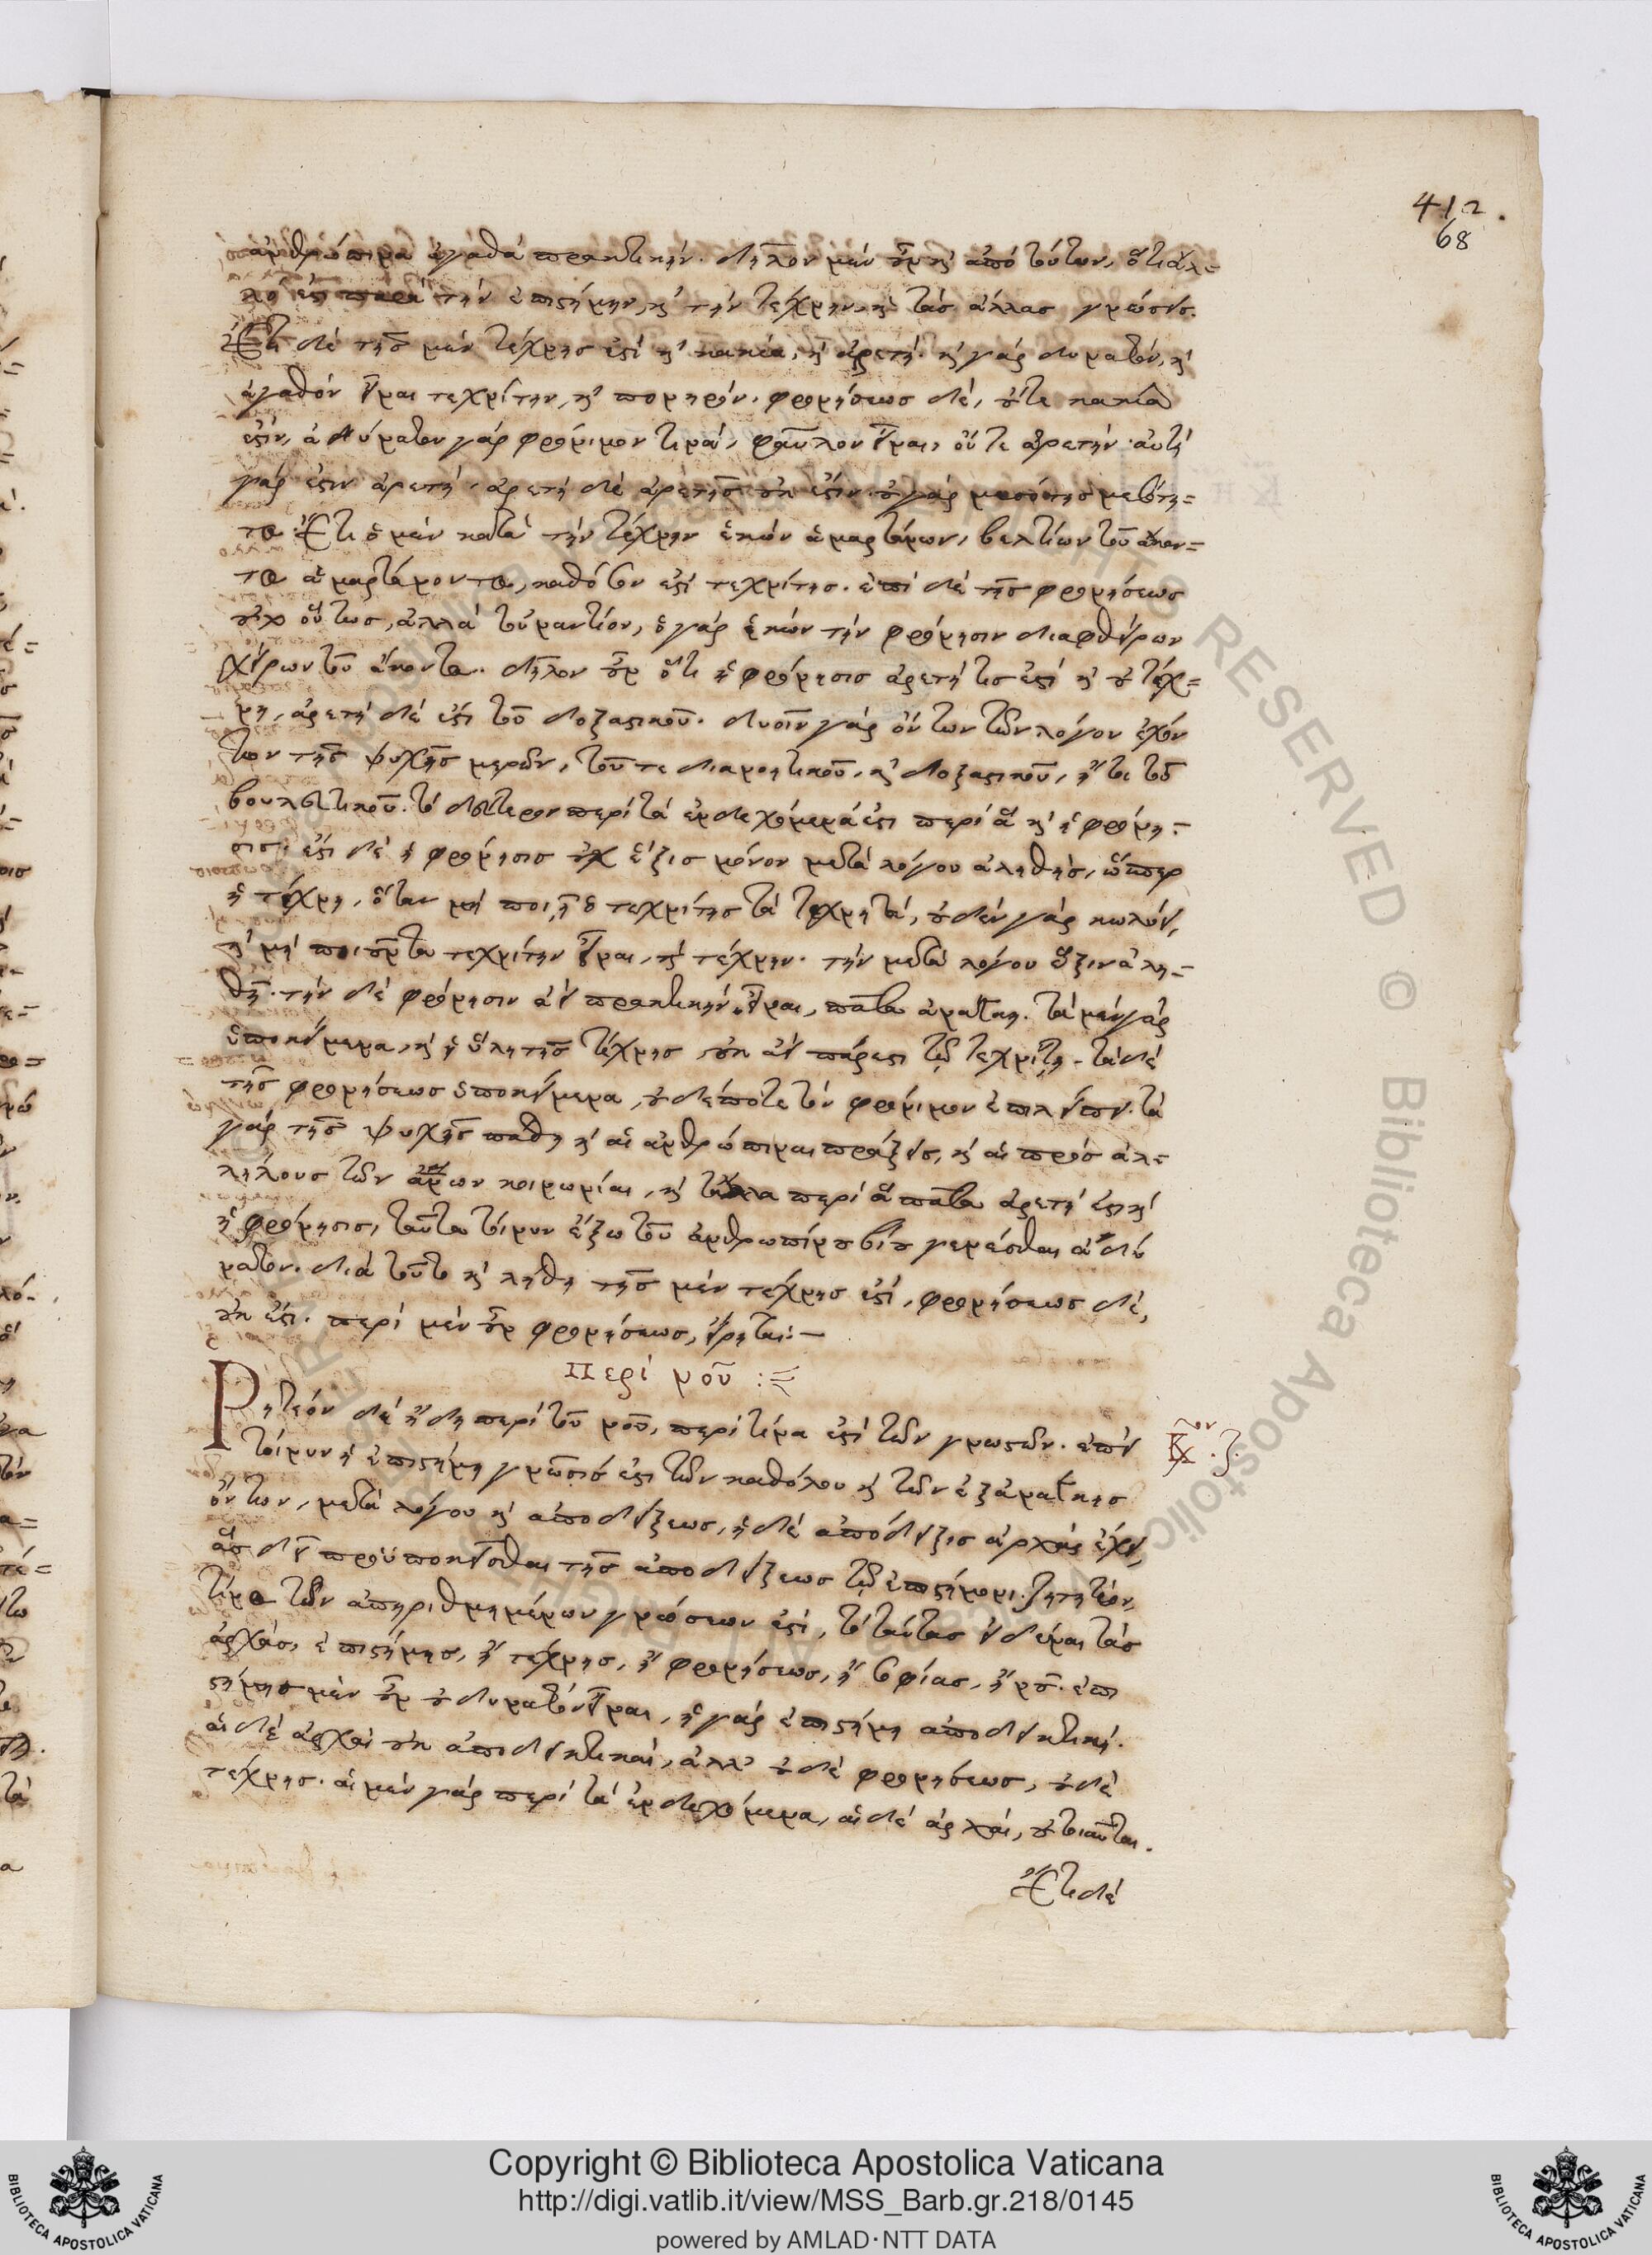 412.
68
ἀνθρώπινα ἀγαθὰ πρακτικήν. δῆλον μὲν οὖν καὶ ἀπὸ τούτων, ὅτι ἄλ=
λο ἐστὶ παρὰ τὴν ἐπιστήμην, καὶ τὴν τέχνην, καὶ τὰς ἄλλας γνώσεις.
Ἔτι δὲ τῆς μὲν τέχνης ἐστὶ καὶ κακία, καὶ ἀρετή. καὶ γὰρ δυνατόν, καὶ
ἀγαθὸν εἶναι τεχνίτην, καὶ πονηρόν. φρονήσεως δὲ, οὔτε κακία
ἐστίν, ἀδύνατον γὰρ φρόνιμον τινὰ, φαῦλον εἶναι, οὔτε ἀρετήν. αὐτὴ
γάρ ἐστιν ἀρετή. ἀρετὴ δὲ ἀρετῆς οὐκ ἔστιν. οὐ γὰρ μεσότης μεσότη=
τος. Ἔτι ὁ μὲν κατὰ τὴν τέχνην ἑκὼν ἁμαρτάνων, βελτίων τοῦ ἄκον=
τος ἁμαρτάνοντος, καθόσον ἐστὶ τεχνίτης. ἐπὶ δὲ τῆς φρονήσεως
οὐχ οὕτως, ἀλλὰ τοὐναντίον, ὁ γὰρ ἑκὼν τὴν φρόνησιν διαφθείρων
χείρων τοῦ ἄκοντος. δῆλον οὖν ὅτι ἡ φρόνησις ἀρετή τις ἐστὶ καὶ οὐ τέχ=
νη, ἀρετὴ δέ ἐστι τοῦ δοξαστικοῦ. δυοῖν γὰρ ὄντων τῶν λόγον ἐχόν
των τῆς ψυχῆς μερῶν, τοῦ τε διανοητικοῦ, καὶ δοξαστικοῦ, ἤτοι τοῦ
βουλευτικοῦ. τὸ δεύτερον περὶ τὰ ἐνδεχόμενά ἐστι περὶ ἃ καὶ ἡ φρόνη=
σις. ἔστι δὲ ἡ φρόνησις οὐχ ἕξις μόνον μετὰ λόγου ἀληθὴς, ὥσπερ
ἡ τέχνη, ὅταν μὴ ποιῇ ὁ τεχνίτης τὰ τεχνητά, οὐδὲν γὰρ κωλύει,
καὶ μὴ ποιοῦντα τεχνίτην εἶναι, καὶ τέχνην. τὴν μετὰ λόγου ἕξιν ἀλη=
θῆ. τὴν δὲ φρόνησιν ἀεὶ πρακτικὴν εἶναι, πᾶσα ἀνάγκη. τὰ μὲν γὰρ
ὑποκείμενα, καὶ ἡ ὕλη τῆς τέχνης, οὐκ ἀεὶ πάρεστι τῷ τεχνίτῃ. τὰ δὲ
τῆς φρονήσεως ὑποκείμενα, οὐδέποτε τὸν φρόνιμον ἐπιλείπει. τὰ
γὰρ τῆς ψυχῆς πάθη καὶ αἱ ἀνθρώπιναι πράξεις, καὶ αἱ πρὸς ἀλ=
λήλους τῶν ἀνων κοινωνίαι, καὶ τἄλλα περὶ ἃ πᾶσα ἀρετή ἐστι καὶ
ἡ φρόνησις, ταῦτα τοίνυν ἔξω τοῦ ἀνθρωπίνου βίου γενέσθαι ἀδύ
νατον. διὰ τοῦτο καὶ λήθη τῆς μὲν τέχνης ἐστὶ, φρονήσεως δὲ,
οὐκ ἔστι. περὶ μὲν οὖν φρονήσεως, εἴρηται:—
Περὶ νοῦ :
Ῥητέον δὲ ἤδη περὶ τοῦ νοῦ, περὶ τίνα ἐστὶ τῶν γνωστῶν. ἐπεὶ
τοίνυν ἡ ἐπιστήμη γνῶσίς ἐστι τῶν καθόλου καὶ τῶν ἐξ ἀνάγκης
ὄντων, μετὰ λόγου καὶ ἀποδείξεως, ἡ δὲ ἀπόδειξις ἀρχὰς ἔχει,
ἃς δεῖ προϋποκεῖσθαι τῆς ἀποδείξεως τῷ ἐπιστήμονι. ζητητέον,
τίνος τῶν ἀπηριθμημένων γνώσεων ἐστὶ, τὸ ταύτας εἰδέναι τὰς
ἀρχάς, ἐπιστήμης, ἢ τέχνης, ἢ φρονήσεως, ἢ σοφίας, ἢ νοῦ. ἐπι
στήμης μὲν οὖν οὐ δυνατὸν εἶναι, ἡ γὰρ ἐπιστήμη ἀποδεικτική.
αἱ δὲ ἀρχαὶ οὐκ ἀποδεικτικαί, ἀλλ' οὐδὲ φρονήσεως, οὐδὲ
τέχνης. αἱ μὲν γὰρ περὶ τὰ ἐνδεχόμενα, αἱ δὲ ἀρχαί, οὐ τοιαῦται.
Ἔτι δὲ
Copyright © Biblioteca Apostolica Vaticana
http://digi.vatlib.it/view/MSS_Barb.gr.218/0145
powered by AMLAD·NTT DATA
BIBLIOTECA APOSTOLICA VATICANA
BIBLIOTECA APOSTOLICA VATICANA